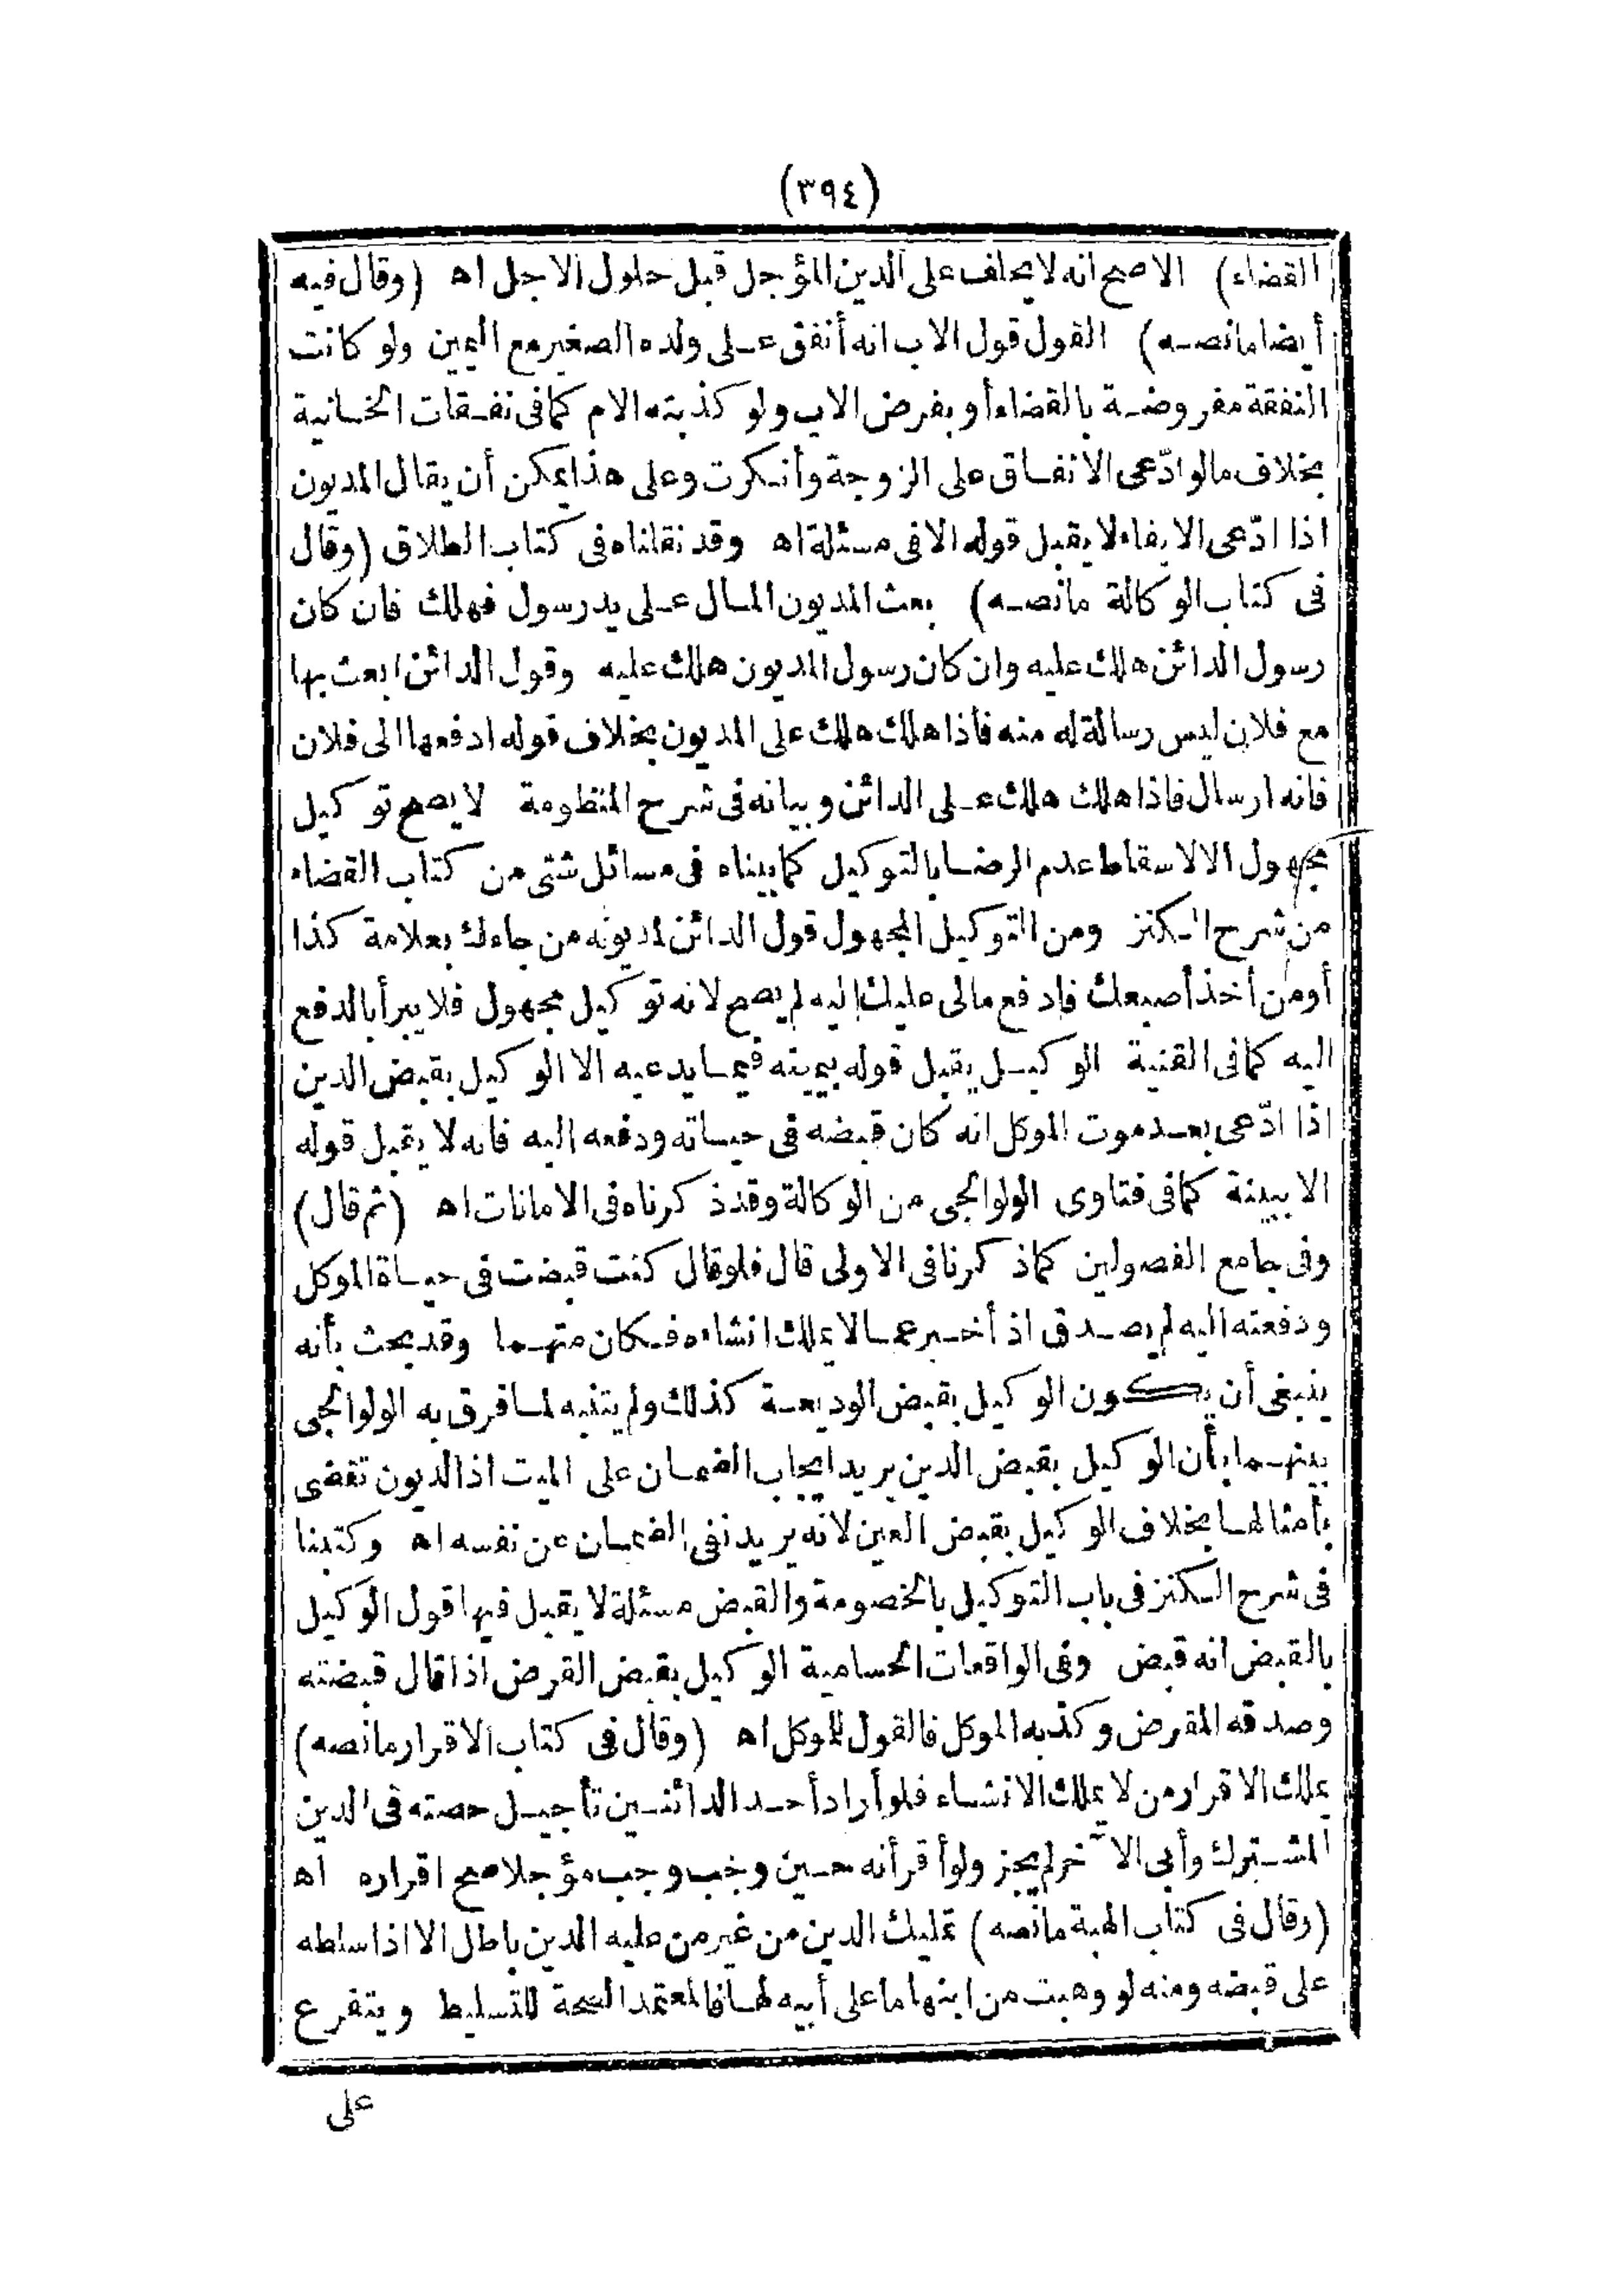 (٣٩٤)
القضاء) الاصح انه لا يحلف على الدين المؤجل قبل حلول الاجل اه (وقال فيه
أيضا ما نصه) القول قول الاب انه أنفق على ولده الصغير مع اليمين ولو كانت
النفقة مفروضة بالقضاء أو بفرض الاب ولو كذبته الام كما فى نفقات الخانية
بخلاف مالو ادّعى الانفاق على الزوجة وأنكرت وعلى هذا يمكن أن يقال المديون
اذا ادّعى الايفاء لا يقبل قوله الا فى مسئلة اه وقد نقلناه فى كتاب الطلاق (وقال
فى كتاب الوكالة ما نصه) بعث المديون المال على يد رسول فهلك فان كان
رسول الدائن هلك عليه وان كان رسول المديون هلك عليه وقول الدائن ابعث بها
مع فلان ليس رسالة له منه فأذا هلك هلك على المديون بخلاف قوله ادفعها الى فلان
فانه ارسال فاذا هلك هلك على الدائن وبيانه فى شرح المنظومة لا يصح توكيل
مجهول الا لاسقاط عدم الرضا بالتوكيل كما بيناه فى مسائل شتى من كتاب القضاء
من شرح الكنز ومن التوكيل المجهول قول الدائن لمديونه من جاءك بعلامة كذا
أو من أخذ أصبعك فادفع مالى عليك اليه لم يصح لانه توكيل مجهول فلا يبرأ بالدفع
اليه كما فى القنية الوكيل يقبل قوله بيمينه فيما يدعيه الا الوكيل بقبض الدين
اذا ادّعى بعد موت الموكل انه كان قبضه فى حياته ودفعه اليه فانه لا يقبل قوله
الا ببينة كما فى فتاوى الولوالجى من الوكالة وقد ذكرناه فى الامانات اه (ثم قال)
وفى جامع الفصولين كما ذكرنا فى الاولى قال فلو قال كنت قبضت فى حياة الموكل
ودفعته اليه لم يصدق اذ أخبر عما لا يملك انشاءه فكان متهما وقد بحث بأنه
ينبغى أن يكون الوكيل بقبض الوديعة كذلك ولم يتنبه لما فرق به الولوالجى
بينهما بأن الوكيل بقبض الدين يريد ايجاب الضمان على الميت اذ الديون تقضى
بأمثالها بخلاف الوكيل بقبض العين لانه يريد نفى الضمان عن نفسه اه وكتبنا
فى شرح الكنز فى باب التوكيل بالخصومة والقبض مسئلة لا يقبل فيها قول الوكيل
بالقبض انه قبض وفى الواقعات الحسامية الوكيل بقبض القرض اذا قال قبضته
وصدقه المقرض وكذبه الموكل فالقول للموكل اه (وقال فى كتاب الاقرار ما نصه)
يملك الاقرار من لا يملك الانشاء فلو أراد أحد الدائنين تأجيل حصته فى الدين
المشترك وأبى الآخر لم يجز ولو أقر أنه حين وجب وجب مؤجلا صح اقراره اه
(وقال فى كتاب الهبة ما نصه) تمليك الدين من غير من عليه الدين باطل الا اذا سلطه
على قبضه ومنه لو وهبت من ابنها ما على أبيه لها فالمعتمد الصحة للتسليط ويتفرع
على